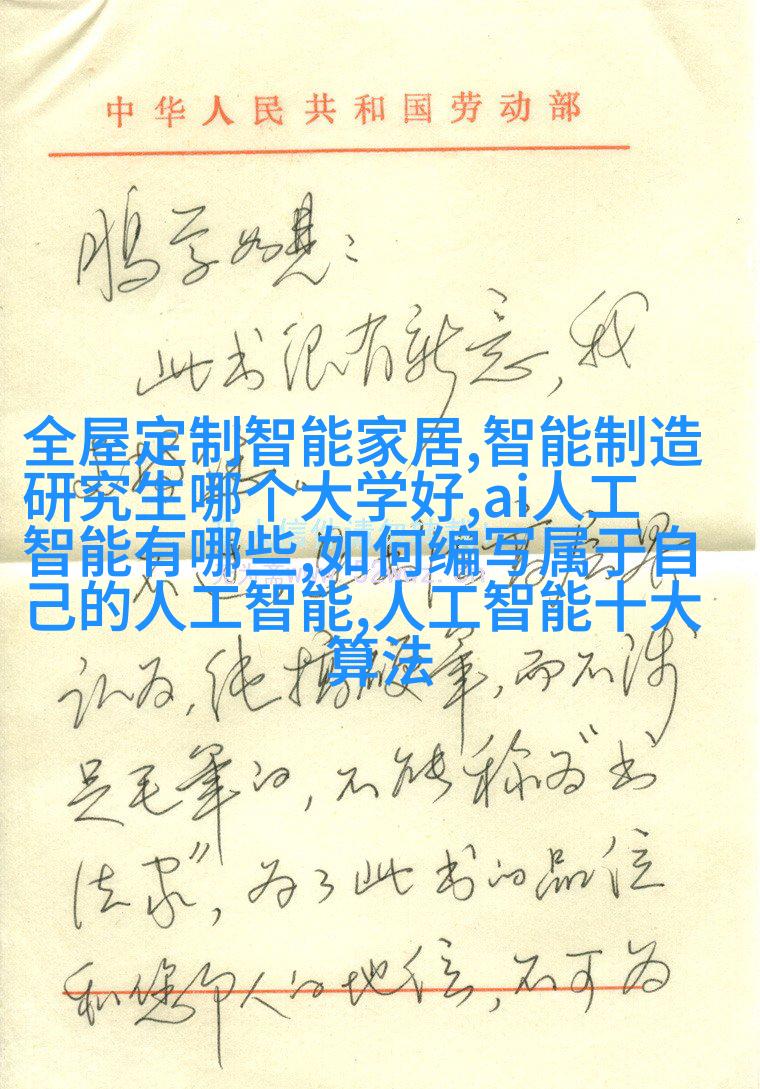 中华人民共和国劳动部
鹏学如晤：
此书很有新意，我
全屋定制智能家居,智能制造
研究生哪个大学好,ai人工
智能有哪些,如何编写属于自
己的人工智能,人工智能十大
算法
认为，纯搞硬笔，而不涉
足毛笔的，不能称为“书
法家”，为了此书的品位
和您个人的地位，不可为